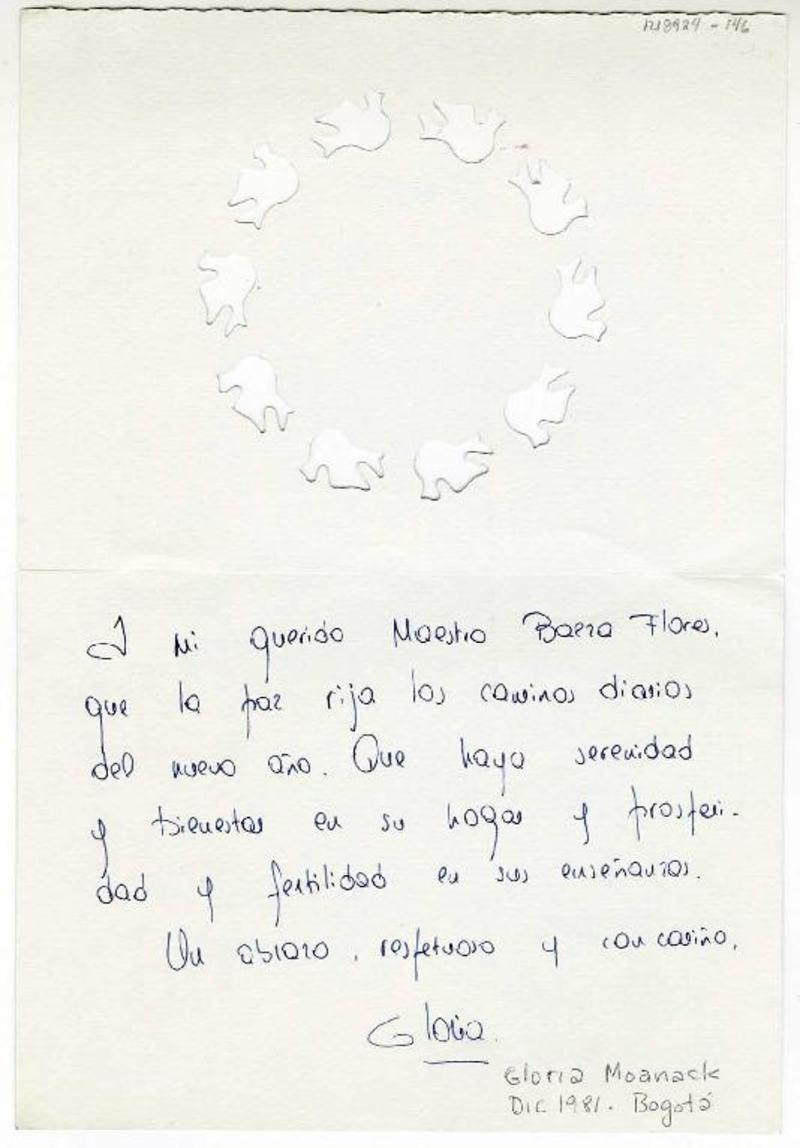 A mi querido Maestro Baeza Flores,
que la paz rija los caminos diarios
del nuevo año. Que haya serenidad
y bienestar en su hogar y prosperi-
dad y fertilidad en sus enseñanzas.
Un abrazo, respetuoso y con cariño,
Gloria.
Gloria Moanack
Dic 1981. Bogotá